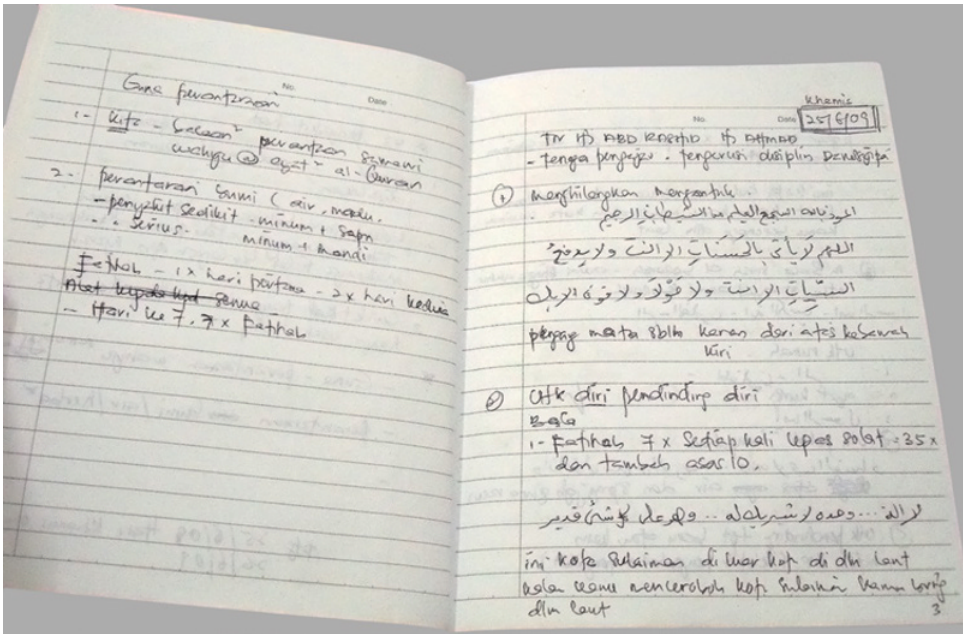 No.
Date
Guna perantaraan
1 - Kita - bacaan² perantaraan samawi
wahyu @ ayat² al-Quran
2 - perantaraan bumi (air, madu.
- penyakit sedikit - minum + sapu
Serius. minum + mandi
Fatihah - 1x hari pertama - 2x hari kedua
- Hari ke 7, 7x Fatihah
Khamis
No.
Date 25/6/09
TN Hj ABD RASHID Hj AHMAD
disiplin
① menghilangkan mengantuk.
اعوذ بالله السميع العليم من الشيطان الرجيم
اللهم لا يأتي بالحسنات الا انت ولا يدفع
السيئات الا انت ولا حول ولا قوة الا بك
pegang mata sblh kanan dari atas kebawah
kiri
② Utk diri pendinding diri
Baca
1 - Fatihah 7x Setiap kali lepas solat = 35x
dan tambah asas 10.
لا اله... وحده لا شريك له .. وهو على كل شئ قدير
ini kota Sulaiman di luar kota di dlm laut
kalau kamu menceroboh kota Sulaiman kamu
dlm laut
3